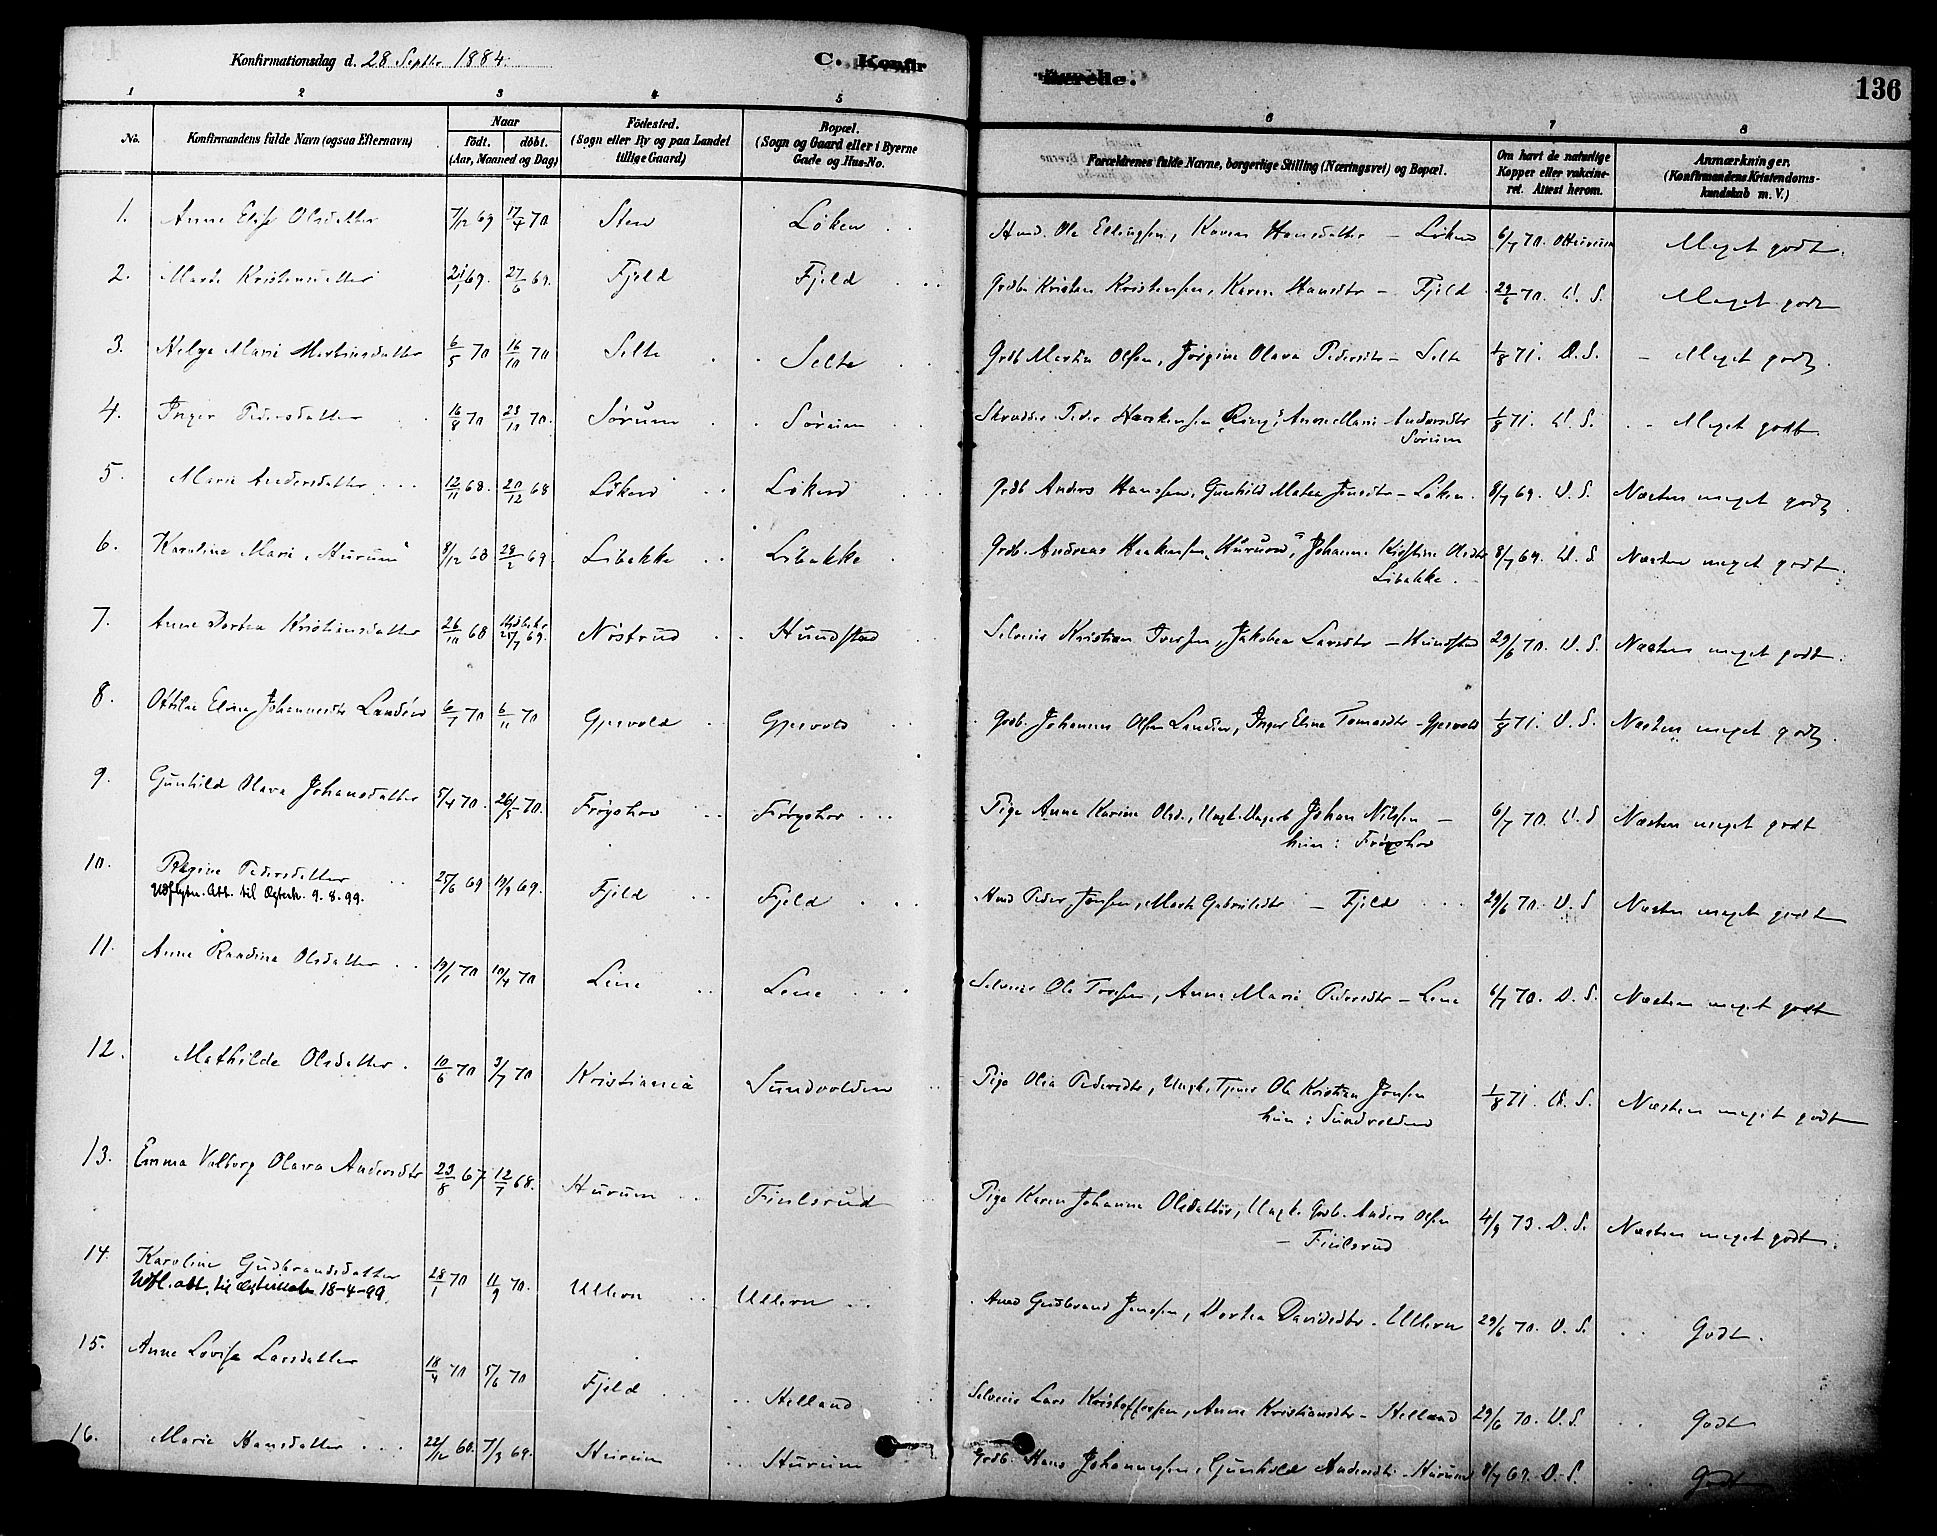 Konfirmationsdag d. 28 Septbr 1884.
C. Konfirmerede.
136
1 2 3 4 5 6 7 8
No. Konfirmandens fulde Navn (ogsaa Efternavn) Naar födt. döbt. (Aar, Maaned og Dag) Födested. (Sogn eller By og paa Landet tillige Gaard) Bopæl. (Sogn og Gaard eller i Byerne Gade og Hus-No. Forældrenes fulde Navne, borgerlige Stilling (Næringsvei) og Bopæl. Om havt de naturlige Kopper eller vakcineret. Attest herom. Anmærkninger. (Konfirmandens Kristendomskundskab m. V.)
1. Anne Elise Olsdatter 7/12 69 17/4 70 Sten Løken Olе Ellingsen, Karen Hansdatter - Løken 6/7 70. Meget godt.
2. Marte Kristensdatter 21/1 69. 27/6 69. Fjeld Fjeld Grdb. Kristen Kristensen, Karen Hansdtr - Fjeld 29/6 70. D. S. Meget godt
3. Helga Marie Martinsdatter 6/5 70 16/10 70 Selte Selte Grdb Martin Olsen, Jørgine Olava Pedersdtr - Selte 1/8 71. D. S. Meget godt.
4. Inger Pedersdatter 16/8 70 23/10 70. Sørum Sørum Skrædder Peder Haakensen Ring, Anne Marie Andersdtr Sørum 1/8 71. D. S. Meget godt.
5. Marie Andersdatter 12/11 68. 20/12 68 Løken Løken Grdb Anders Hansen, Gunhild Matea Jensdtr - Løken. 8/7 69. D. S. Næsten meget godt.
6. Karoline Marie "Hurum" 8/12 68 28/2 69. Libakke Libakke Grdb. Andreas Haakensen "Hurum", Johanne Kirstine Olsdtr Libakke. 8/7 69. D. S Næsten meget godt.
7. Anne Dortea Kristiansdatter 26/10 68 25/7 69. Nøstrud Hundstad Selveier Kristian Iversen, Jakobea Larsdtr - Hundstad 29/6 70. D. S. Næsten meget godt.
8. Ottilie Eline Johannesdtr Landsen 6/7 70 6/11 70 Gjesvold Gjesvold Grdb. Johannes Olsen, Inger Eline Tomasdtr - Gjesvold 1/8 71. D. S. Næsten meget godt.
9. Gunhild Olava Johansdatter 5/4 70. 26/5 70. Frøyshov Frøyshov Pige Anne Karine Olsd., Ungk. Johan Nilsen - hun: Frøyshov 6/7 70. D. S Næsten meget godt
10. Regine Pedersdatter 25/6 69 19/9 69. Fjeld Fjeld Peder Jonsen, Marte Gabrielsdtr - Fjeld 29/6 70. D. S Næsten meget godt
Udflytn. Att. til Ægtesk. 9.8.99.
11. Anne Randine Olsdatter 19/1 70 10/4 70 Lene Lene Selveier Ole Torsen, Anne Marie Pedersdtr - Lene 6/7 70. D. S. Næsten meget godt
12. Mathilde Olsdatter. 10/6 70 3/7 70 Kristiania Sundvolden Pige Olia Pedersdtr, Ungk. Tjener Ole Kristian Jonsen hun: Sundvolden 1/8 71. D. S. Næsten meget godt
13. Emma Valborg Olava Andersdtr 23/8 67. 12/7 68. Hurum Finlsrud Pige Karen Johanne Olsdatter, Ungk. Grdb. Anders Olsen - Finlsrud 4/9 73. D. S. Næsten meget godt.
14. Karoline Gudbrandsdatter 28/1 70 11/9 70. Ullern Ullern Gudbrand Jensen, Dortea Davidsdtr - Ullern 29/6 70. D. S. Godt.
Udfl. att. til Ægteskab 18-4-99.
15. Anne Lovise Larsdatter 18/4 70 5/6 70 Fjeld Helland Selveier Lars Kristoffersen, Anne Kristiansdtr - Helland 29/6 70. D. S. Godt
16. Marie Hansdatter 22/12 68. 7/3 69. Hurum Hurum Grdb. Hans Johannessen, Gunhild Andersdtr - Hurum 8/7 69. D. S. Godt